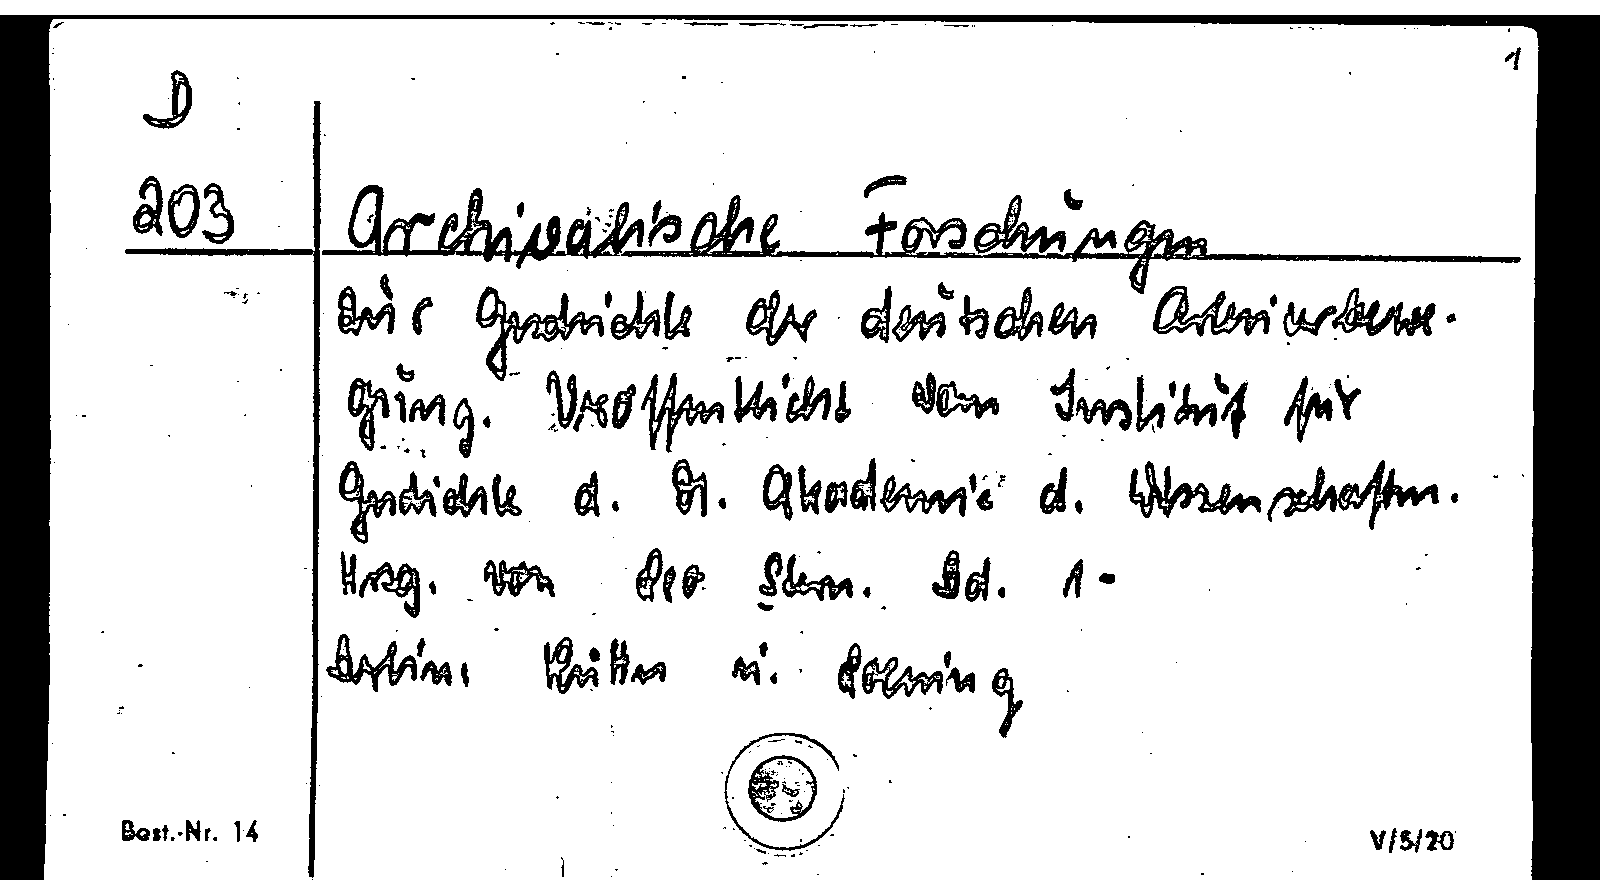 1
D
203
Archivalische Forschungen
zur Geschichte der deutschen Arbeiterbewe-
gung. Veröffentlicht vom Institut für
Geschichte d. Dt. Akademie d. Wissenschaften.
Hrsg. von Leo Stern. Bd. 1-
Berlin: Rütten u. Loening
Best.-Nr. 14
V/5/20